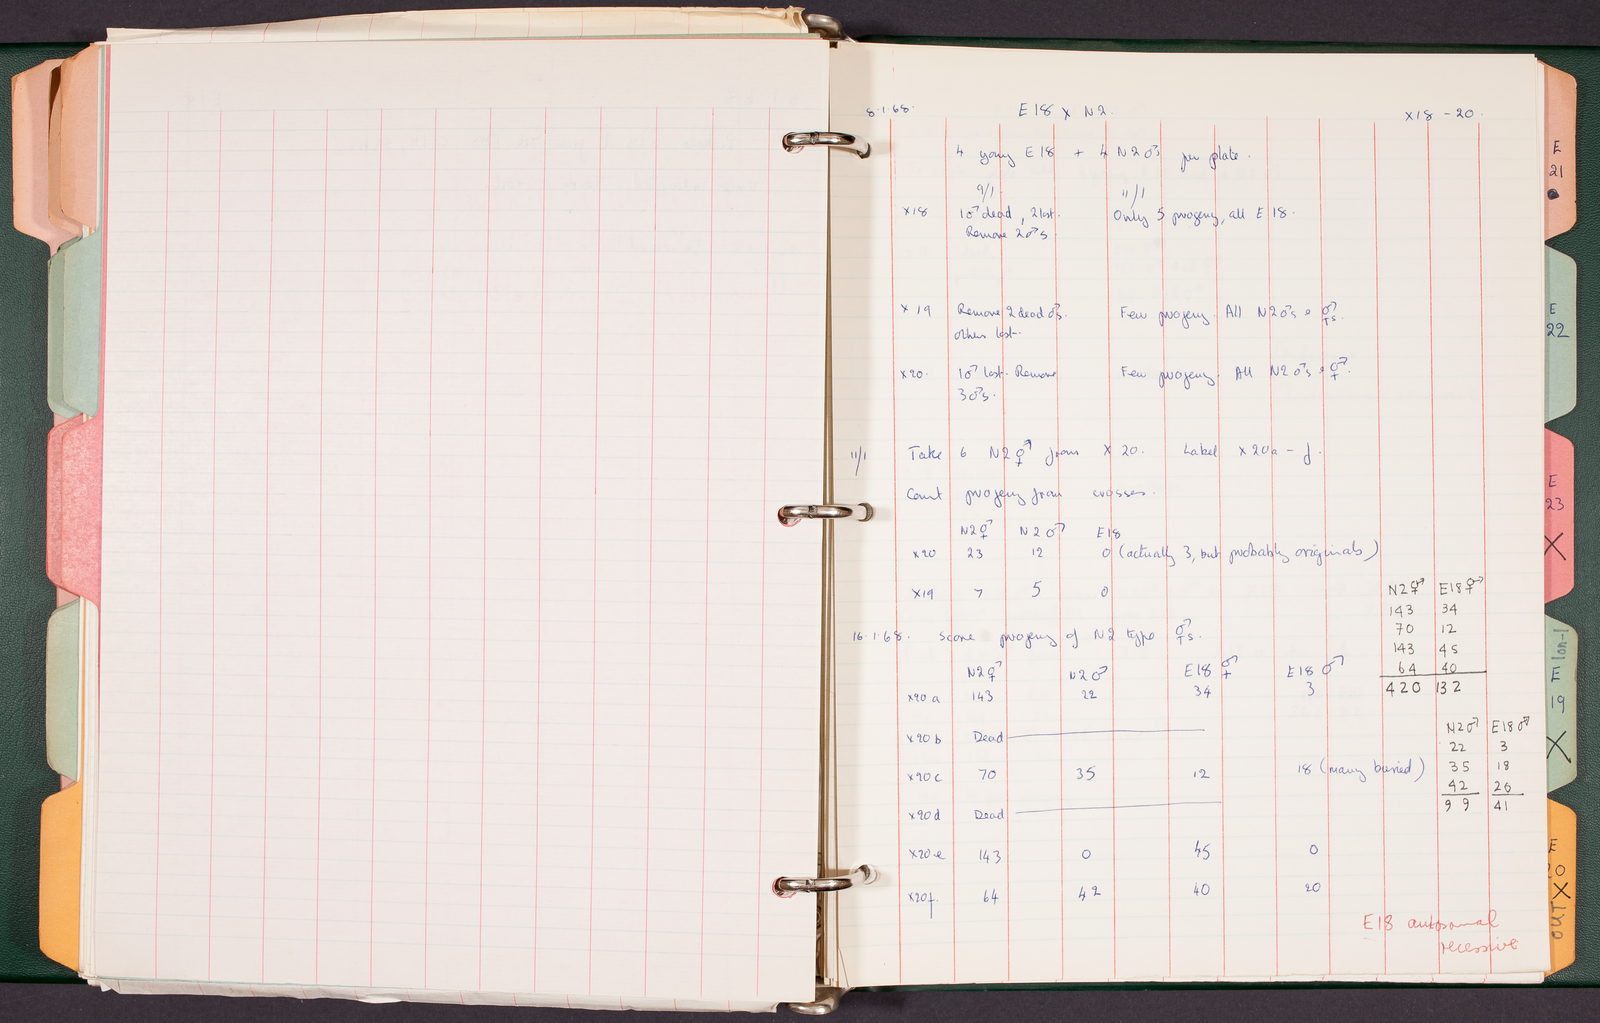 8.1.68. E18 x N2. x18 - 20.
4 young E18 + 4 N2 ♂s per plate.
9/1 11/1
x18 1♂ dead, 2 lost. Only 5 progeny, all E18.
Remove 2♂s.
x19 Remove 2 dead ♂s. Few progeny. All N2 ♂s + ⚥s.
others lost.
x20. 1♂ lost. Remove Few progeny. All N2 ♂s + ⚥.
3♂s.
11/1 Take 6 N2 ⚥ from x20. Label x20a - f.
Count progeny from crosses.
N2⚥ N2♂ E18
x20 23 12 0 (actually 3, but probably originals)
x19 7 5 0
16.1.68. Score progeny of N2 type ⚥s.
N2⚥ N2♂ E18⚥ E18♂
x20a 143 22 34 3
x20b Dead
x20c 70 35 12 18 (many buried)
x20d Dead
x20e 143 0 45 0
x20f. 64 42 40 20
N2⚥ E18⚥
143 34
70 12
143 45
64 40
420 132
N2♂ E18♂
22 3
35 18
42 20
99 41
E18 autosomal
recessive
E
21
E
22
E
23
X
E lon-1
19
X
E
20
OUT X